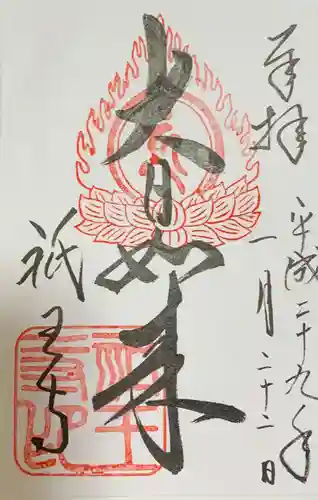 奉拝
平成二十九年
一月二十二日
大日如来
祇王寺